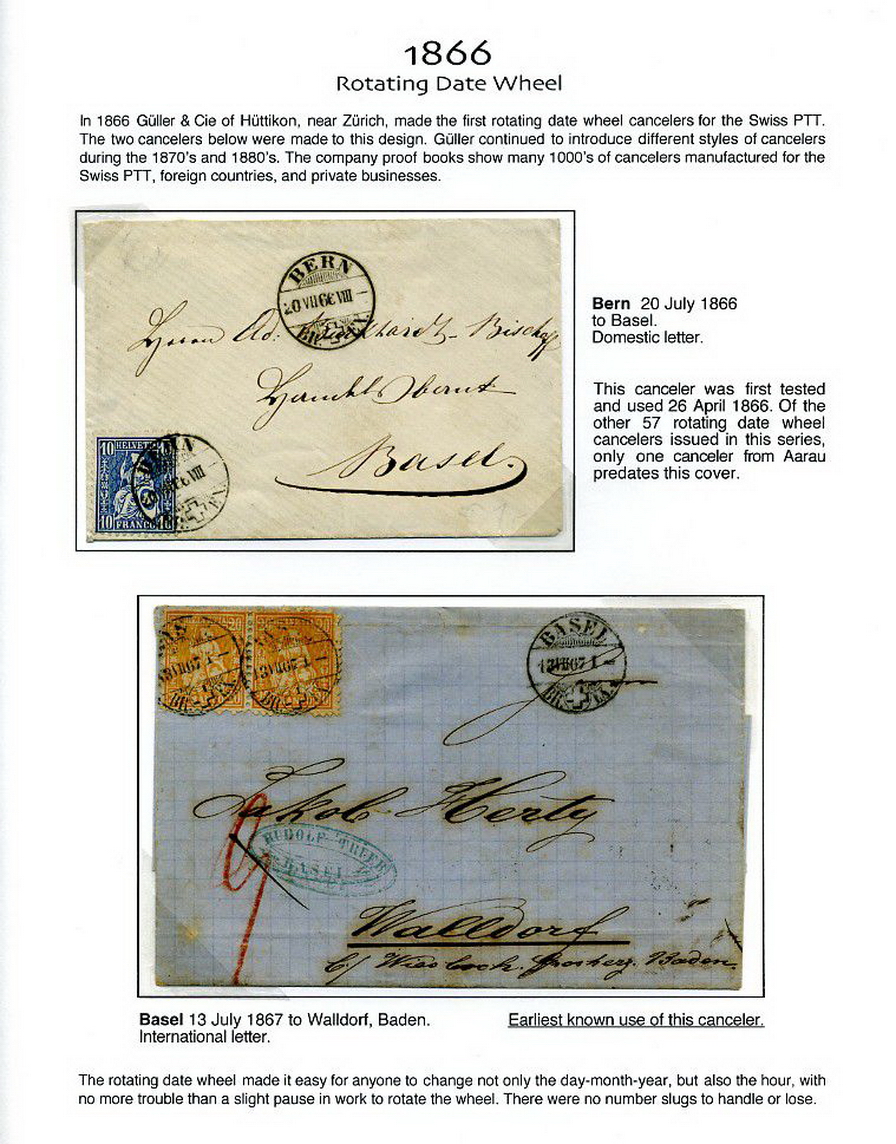 1866
Rotating Date Wheel
In 1866 Güller & Cie of Hüttikon, near Zürich, made the first rotating date wheel cancelers for the Swiss PTT.
The two cancelers below were made to this design. Güller continued to introduce different styles of cancelers
during the 1870's and 1880's. The company proof books show many 1000's of cancelers manufactured for the
Swiss PTT, foreign countries, and private businesses.
BERN
20 VII 66 VIII
Herrn Ad. Burckhardt-Bischoff
Basel.
10 HELVETIA
10 FRANCO
Bern 20 July 1866
to Basel.
Domestic letter.
This canceler was first tested
and used 26 April 1866. Of the
other 57 rotating date wheel
cancelers issued in this series,
only one canceler from Aarau
predates this cover.
20
13 VII 67 I
13 VII 67 I
BASEL
13 VII 67 I
Jakob Herty
RUDOLF
BASEL
Walldorf
Baden.
Basel 13 July 1867 to Walldorf, Baden.
International letter.
Earliest known use of this canceler.
The rotating date wheel made it easy for anyone to change not only the day-month-year, but also the hour, with
no more trouble than a slight pause in work to rotate the wheel. There were no number slugs to handle or lose.